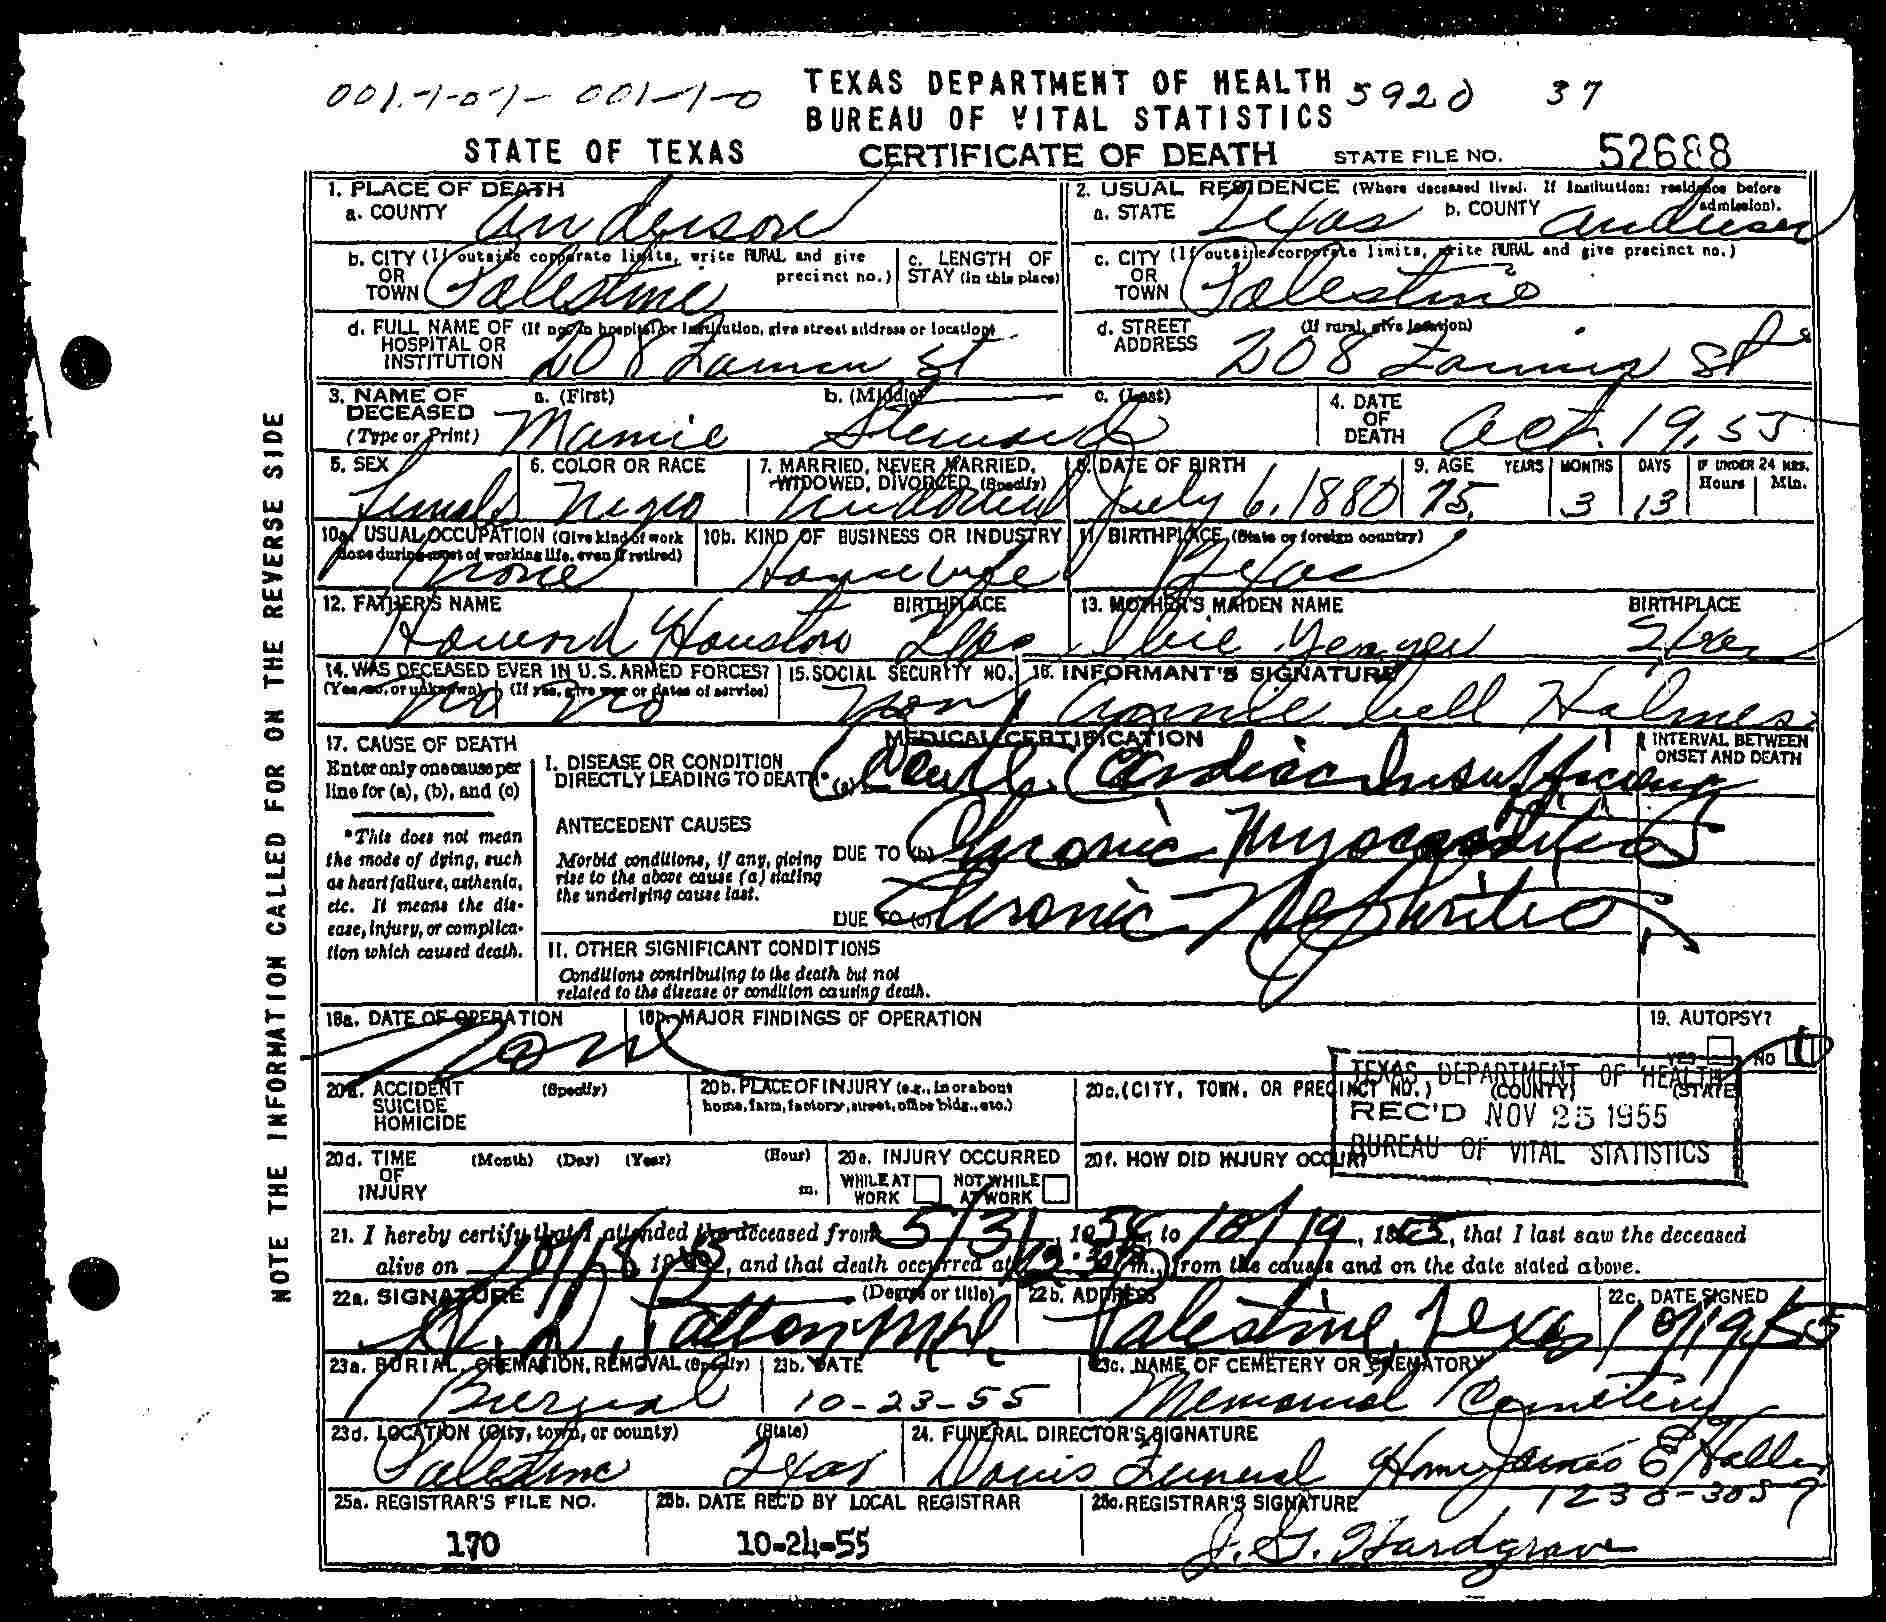 001-1-01- 001-1-0
TEXAS DEPARTMENT OF HEALTH 5920 37
BUREAU OF VITAL STATISTICS
STATE OF TEXAS CERTIFICATE OF DEATH STATE FILE NO. 52688
1. PLACE OF DEATH
a. COUNTY Anderson
2. USUAL RESIDENCE (Where deceased lived. If institution: residence before admission).
a. STATE Texas b. COUNTY Anderson
b. CITY (If outside corporate limits, write RURAL and give precinct no.)
OR TOWN Palestine
c. LENGTH OF STAY (in this place)
c. CITY (If outside corporate limits, write RURAL and give precinct no.)
OR TOWN Palestine
d. FULL NAME OF (If not in hospital or institution, give street address or location)
HOSPITAL OR INSTITUTION 208 St
d. STREET ADDRESS (If rural, give location)
208 St
3. NAME OF DECEASED (Type or Print)
a. (First) b. (Middle) c. (Last)
Mamie
4. DATE OF DEATH Oct. 19, 55
5. SEX Female
6. COLOR OR RACE Negro
7. MARRIED, NEVER MARRIED, WIDOWED, DIVORCED (Specify)
8. DATE OF BIRTH July 6, 1880
9. AGE YEARS MONTHS DAYS IF UNDER 24 HRS. Hours Min.
75 3 13
10a. USUAL OCCUPATION (Give kind of work done during most of working life, even if retired)
none
10b. KIND OF BUSINESS OR INDUSTRY
Housewife
11. BIRTHPLACE (State or foreign country)
Texas
12. FATHER'S NAME BIRTHPLACE
Howard Houston
13. MOTHER'S MAIDEN NAME BIRTHPLACE
14. WAS DECEASED EVER IN U.S. ARMED FORCES?
(Yes, no, or unknown) (If yes, give war or dates of service)
No No
15. SOCIAL SECURITY NO.
Non
16. INFORMANT'S SIGNATURE
Annie bell Holmes
17. CAUSE OF DEATH
Enter only one cause per line for (a), (b), and (c)
MEDICAL CERTIFICATION
INTERVAL BETWEEN ONSET AND DEATH
I. DISEASE OR CONDITION
DIRECTLY LEADING TO DEATH* (a) Acute Cardiac Insufficiency
*This does not mean the mode of dying, such as heart failure, asthenia, etc. It means the disease, injury, or complication which caused death.
ANTECEDENT CAUSES
Morbid conditions, if any, giving rise to the above cause (a) stating the underlying cause last.
DUE TO (b) Chronic Myocarditis
DUE TO (c) Chronic Nephritis
II. OTHER SIGNIFICANT CONDITIONS
Conditions contributing to the death but not related to the disease or condition causing death.
18a. DATE OF OPERATION
None
18b. MAJOR FINDINGS OF OPERATION
19. AUTOPSY?
YES NO
20a. ACCIDENT SUICIDE HOMICIDE (Specify)
20b. PLACE OF INJURY (e.g., in or about home, farm, factory, street, office bldg., etc.)
20c. (CITY, TOWN, OR PRECINCT NO.) (COUNTY) (STATE)
TEXAS DEPARTMENT OF HEALTH
REC'D NOV 25 1955
BUREAU OF VITAL STATISTICS
20d. TIME OF INJURY (Month) (Day) (Year) (Hour) m.
20e. INJURY OCCURRED
WHILE AT WORK NOT WHILE AT WORK
20f. HOW DID INJURY OCCUR?
21. I hereby certify that I attended the deceased from 5/31, 1954, to 10/19, 1955, that I last saw the deceased
alive on 10/18 1955, and that death occurred at m., from the causes and on the date stated above.
22a. SIGNATURE (Degree or title)
Patton M.D.
22b. ADDRESS
Palestine, Texas
22c. DATE SIGNED
10/19/55
23a. BURIAL, CREMATION, REMOVAL (Specify)
23b. DATE
10-23-55
23c. NAME OF CEMETERY OR CREMATORY
Memorial Cemetery
23d. LOCATION (City, town, or county) (State)
Palestine Texas
24. FUNERAL DIRECTOR'S SIGNATURE
Davis Funeral Home James E
25a. REGISTRAR'S FILE NO.
170
25b. DATE REC'D BY LOCAL REGISTRAR
10-24-55
25c. REGISTRAR'S SIGNATURE
J. G. Hardgrave
NOTE THE INFORMATION CALLED FOR ON THE REVERSE SIDE